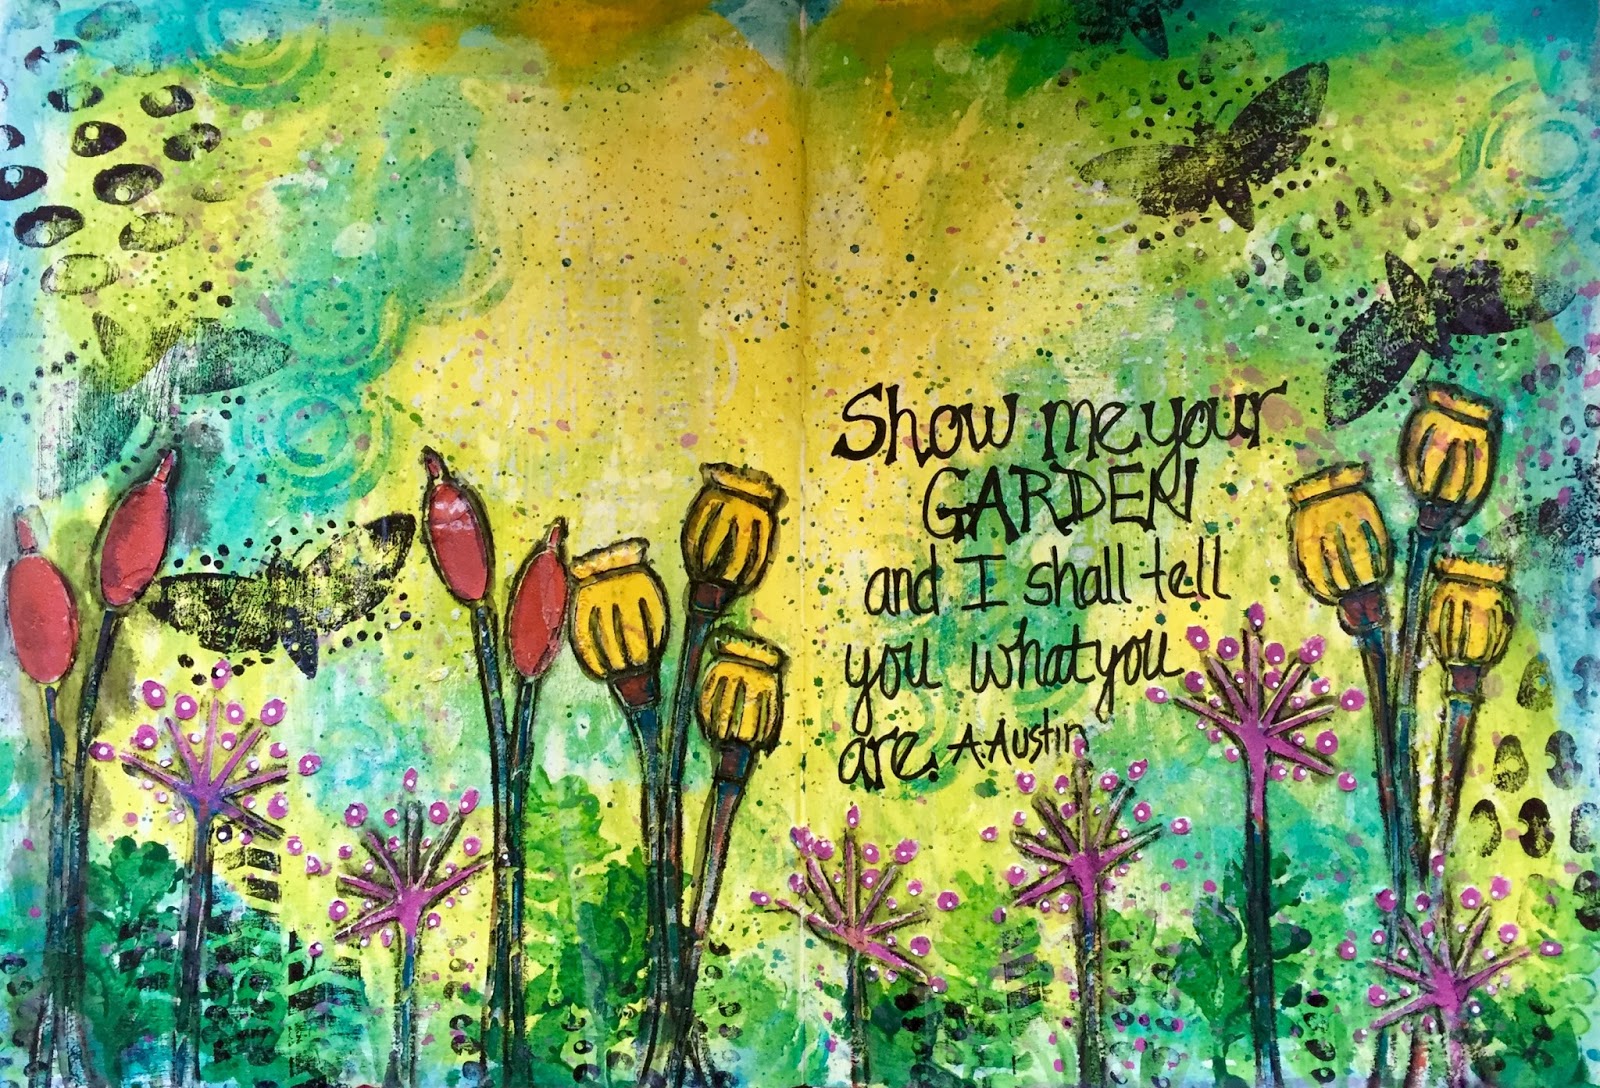 Show me your
GARDEN
and I shall tell
you what you
are. A. Austin